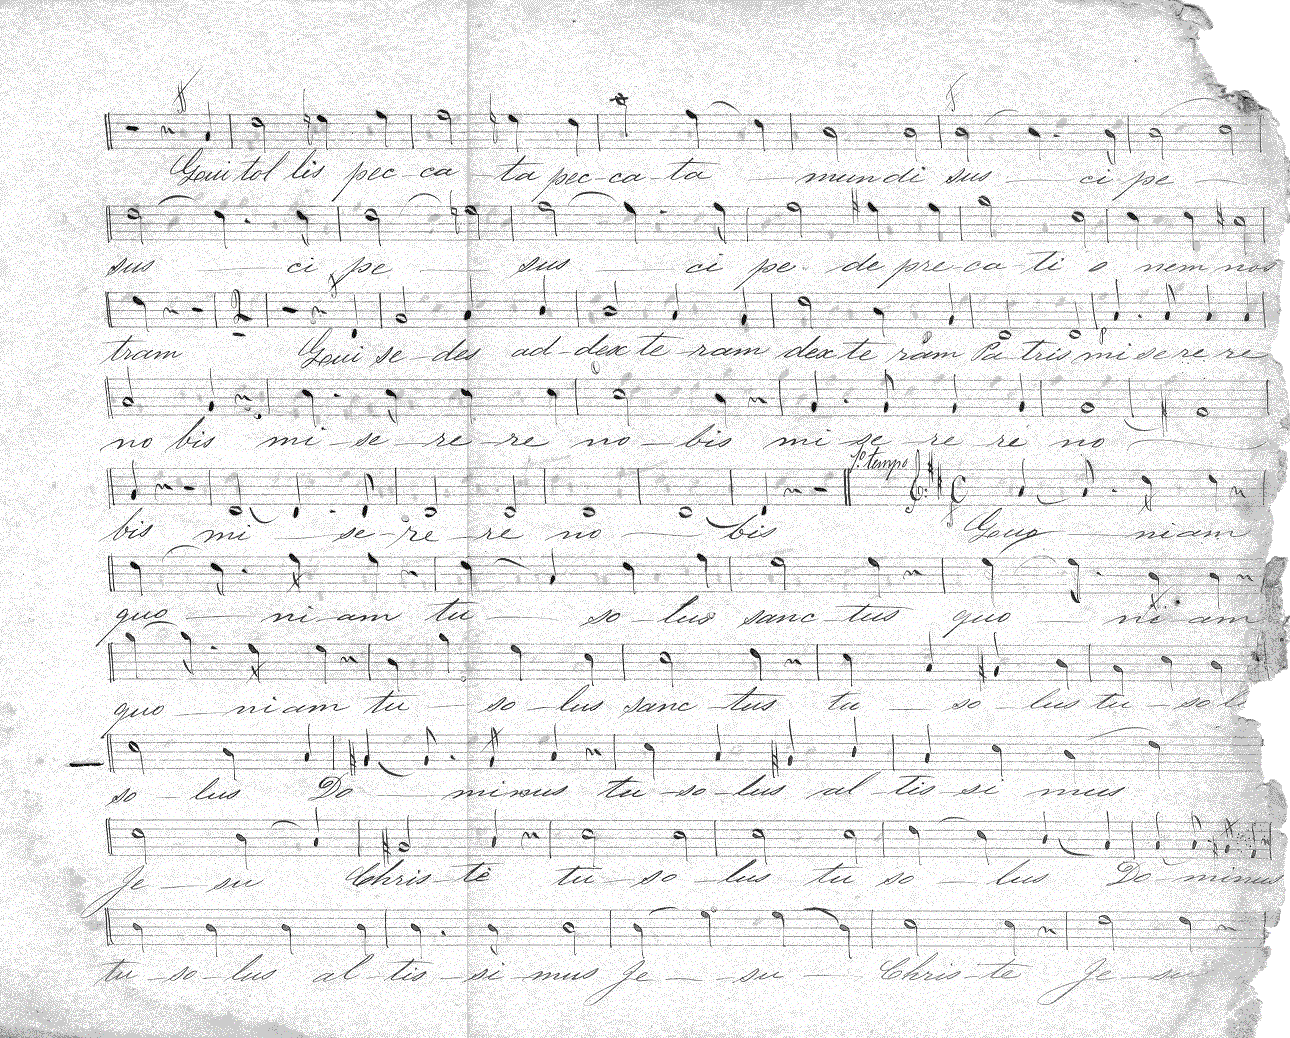 Qui tol lis pec - ca - ta pec - ca - ta - mun di sus - ci pe -
sus - ci pe - sus - ci pe. de pre - ca - ti o nem nos
tram Qui se - des ad - dex te - ram dex te ram Pa tris mi se re re
no bis mi - se - re - re no - bis mi se re re no -
bis mi - se - re - re no - bis 1º tempo Quo - ni am
quo - ni - am tu - so - lus sanc - tus quo - ni am
quo - ni am tu - so - lus sanc - tus tu - so - lus tu - so l
so - lus Do - minus tu - so - lus al - tis - si mus
Je - su Chris - te tu - so - lus tu so - lus Do - minus
tu - so - lus al - tis - si mus Je - su Chris - te Je - su